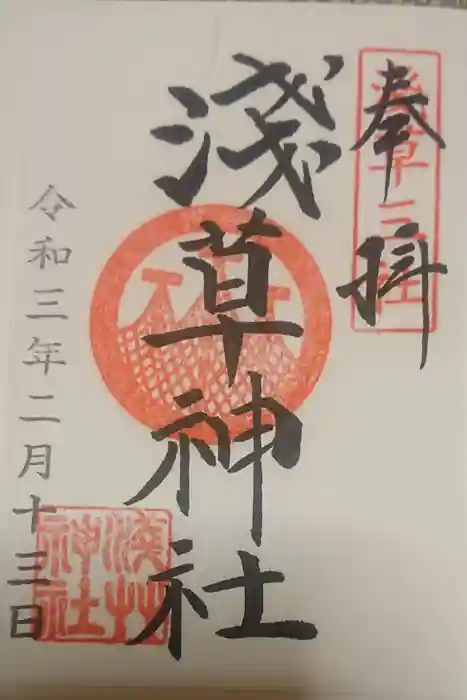 奉拝
淺草三社
淺草神社
令和三年二月十三日
淺草
神社